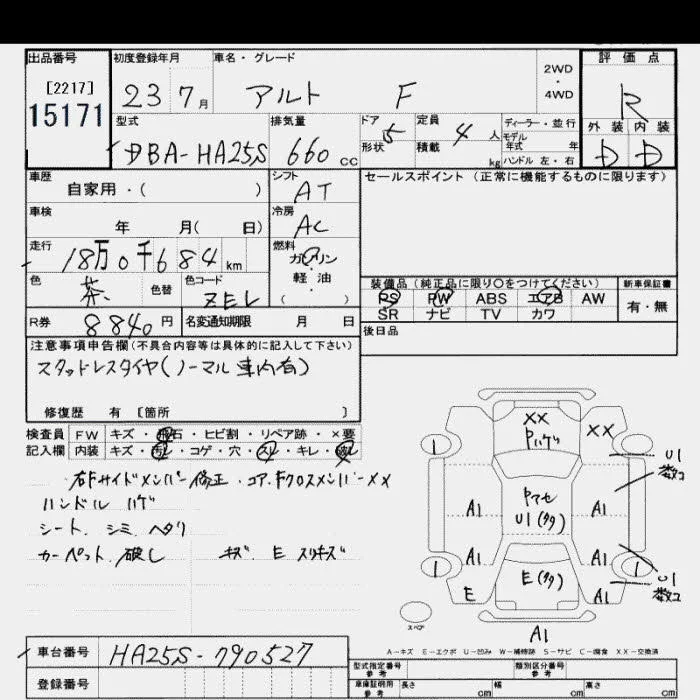 出品番号 初度登録年月 車名・グレード 評価点
[2217] 2WD
15171 23 7月 アルト F ・ R
4WD
型式 排気量 ドア 定員 ディーラー・並行 外装 内装
DBA-HA25S 660cc 5 4人 モデル D D
形状 積載 kg 年式 年
ハンドル 左・右
車歴 シフト セールスポイント(正常に機能するものに限ります)
自家用・( ) AT
車検 冷房
年 月( 日) AC
走行 燃料
18万0千684km ガソリン
色 色替 色コード 軽油
茶 ZEL ( )
装備品(純正品に限り○をつけてください) 新車保証書
PS PW ABS エアB AW 有・無
SR ナビ TV カワ
R券 8840円 名変通知期限 月 日
後日品
注意事項申告欄(不具合内容等は具体的に記入して下さい)
スタッドレスタイヤ(ノーマル車内有)
修復歴 有 [箇所 ]
検査員 FW キズ・飛石・ヒビ割・リペア跡・×要
記入欄 内装 キズ・・コゲ・穴・スレ・キレ・
右Fサイドメンバー修正・コア・Fクロスメンバーxx
ハンドル ハゲ
シート、シミ、ヘタリ
カーペット、破し キズ、E スリキズ
XX
Pハゲ
XX
1
1
U1
数コ
A1
Pヤセ
U1(多々)
A1
A1
A1
1
1
U1
数コ
E
E(多々)
A1
スペア
A1
A-キズ E-エクボ U-凹み W-補修跡 S-サビ C-腐食 XX-交換済
車台番号 HA25S-790527
登録番号
型式指定番号 参考 類別区分番号 参考
車庫証明用 参考 長さ cm 幅 cm 高さ cm